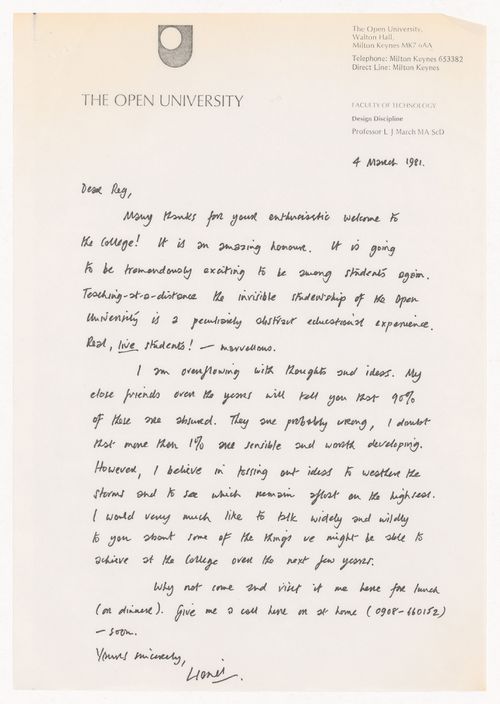 The Open University,
Walton Hall,
Milton Keynes MK7 6AA
Telephone: Milton Keynes 653382
Direct Line: Milton Keynes
THE OPEN UNIVERSITY
FACULTY OF TECHNOLOGY
Design Discipline
Professor L J March MA ScD
4 March 1981.
Dear Reg,
Many thanks for your enthusiastic welcome to
the College! It is an amazing honour. It is going
to be tremendously exciting to be among students again.
Teaching-at-a-distance the invisible studentship of the Open
University is a peculiarly abstract educational experience.
Real, live students! — marvellous.
I am overflowing with thoughts and ideas. My
close friends over the years will tell you that 90%
of these are absurd. They are probably wrong, I doubt
that more than 1% are sensible and worth developing.
However, I believe in tossing out ideas to weather the
storms and to see which remain afloat on the high seas.
I would very much like to talk widely and wildly
to you about some of the things we might be able to
achieve at the College over the next few years.
Why not come and visit me here for lunch
(or dinner). Give me a call here or at home (0908-660152)
— soon.
Yours sincerely,
Lionel.